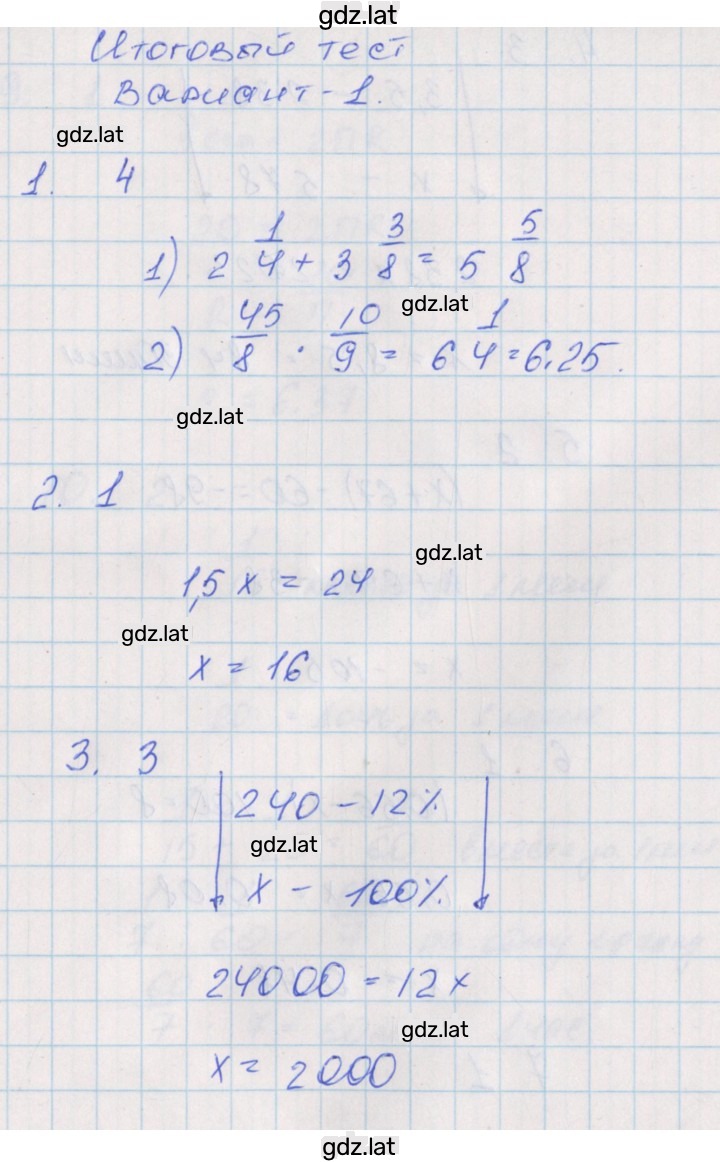 gdz.lat
Итоговый тест
Вариант-1.
gdz.lat
1. 4
1) 2 1/4 + 3 3/8 = 5 5/8
gdz.lat
2) 45/8 · 10/9 = 6 1/4 = 6.25.
gdz.lat
2. 1
gdz.lat
1,5 x = 24
gdz.lat
x = 16
3. 3
240 - 12%
gdz.lat
x - 100%
24000 = 12 x
gdz.lat
x = 2000
gdz.lat